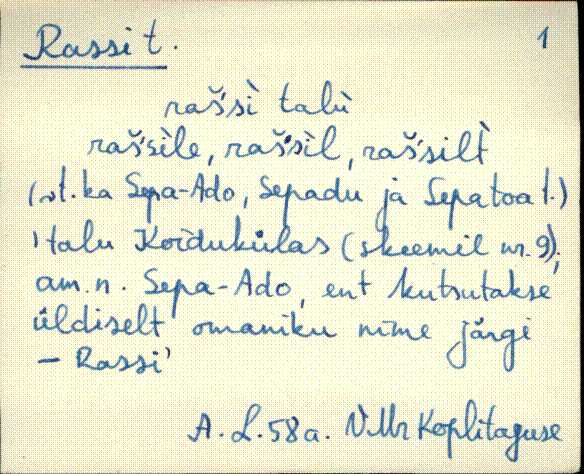 Rassi t. 1
raš'sì talù
raš'sìle, raš'sìl, raš'silt̀
(vt. ka Sepa-Ado, Sepadu ja Sepatoa t.)
'talu Koidukülas (skeemil nr. 9);
am. n. Sepa-Ado, ent kutsutakse
üldiselt omaniku nime järgi
– Rassi'
A. L. 58a. V.Mr Koplitaguse